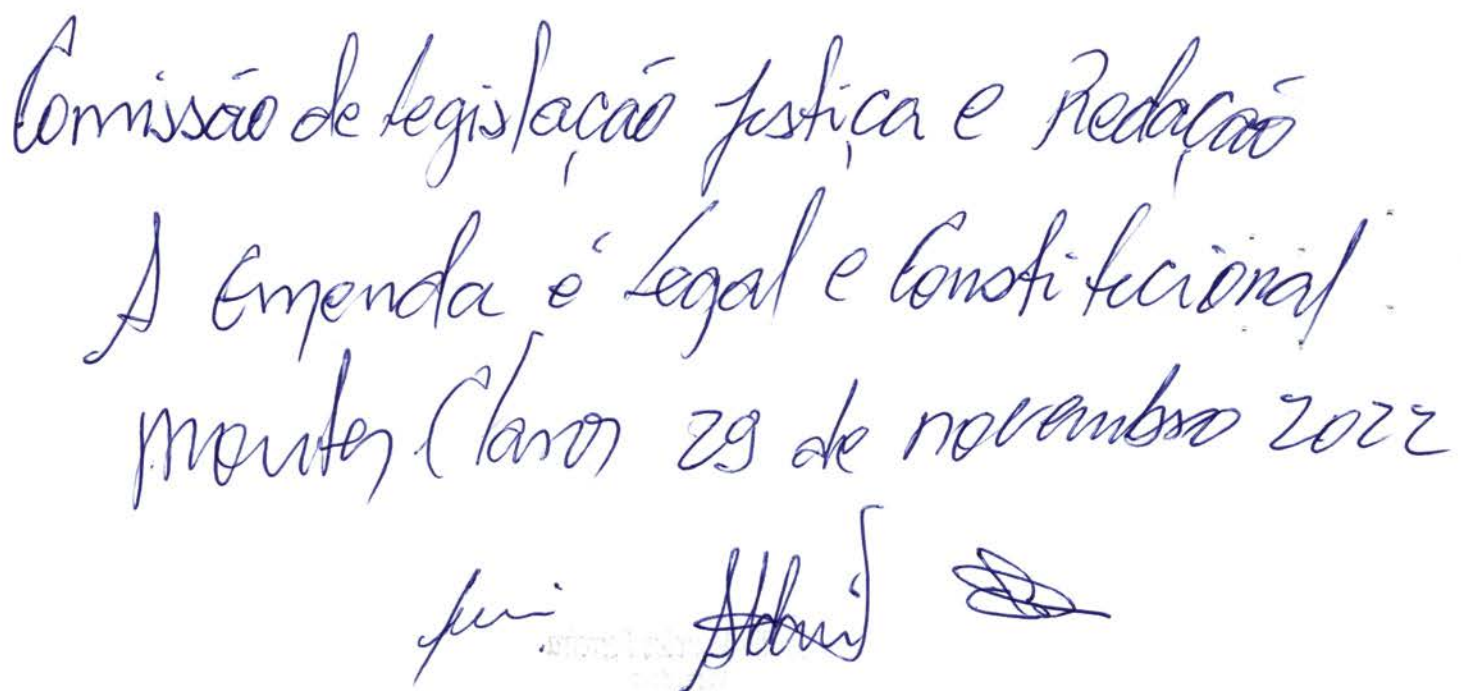 Comissão de Legislação Justiça e Redação
A Emenda é Legal e Constitucional
Montes Claros 29 de novembro 2022